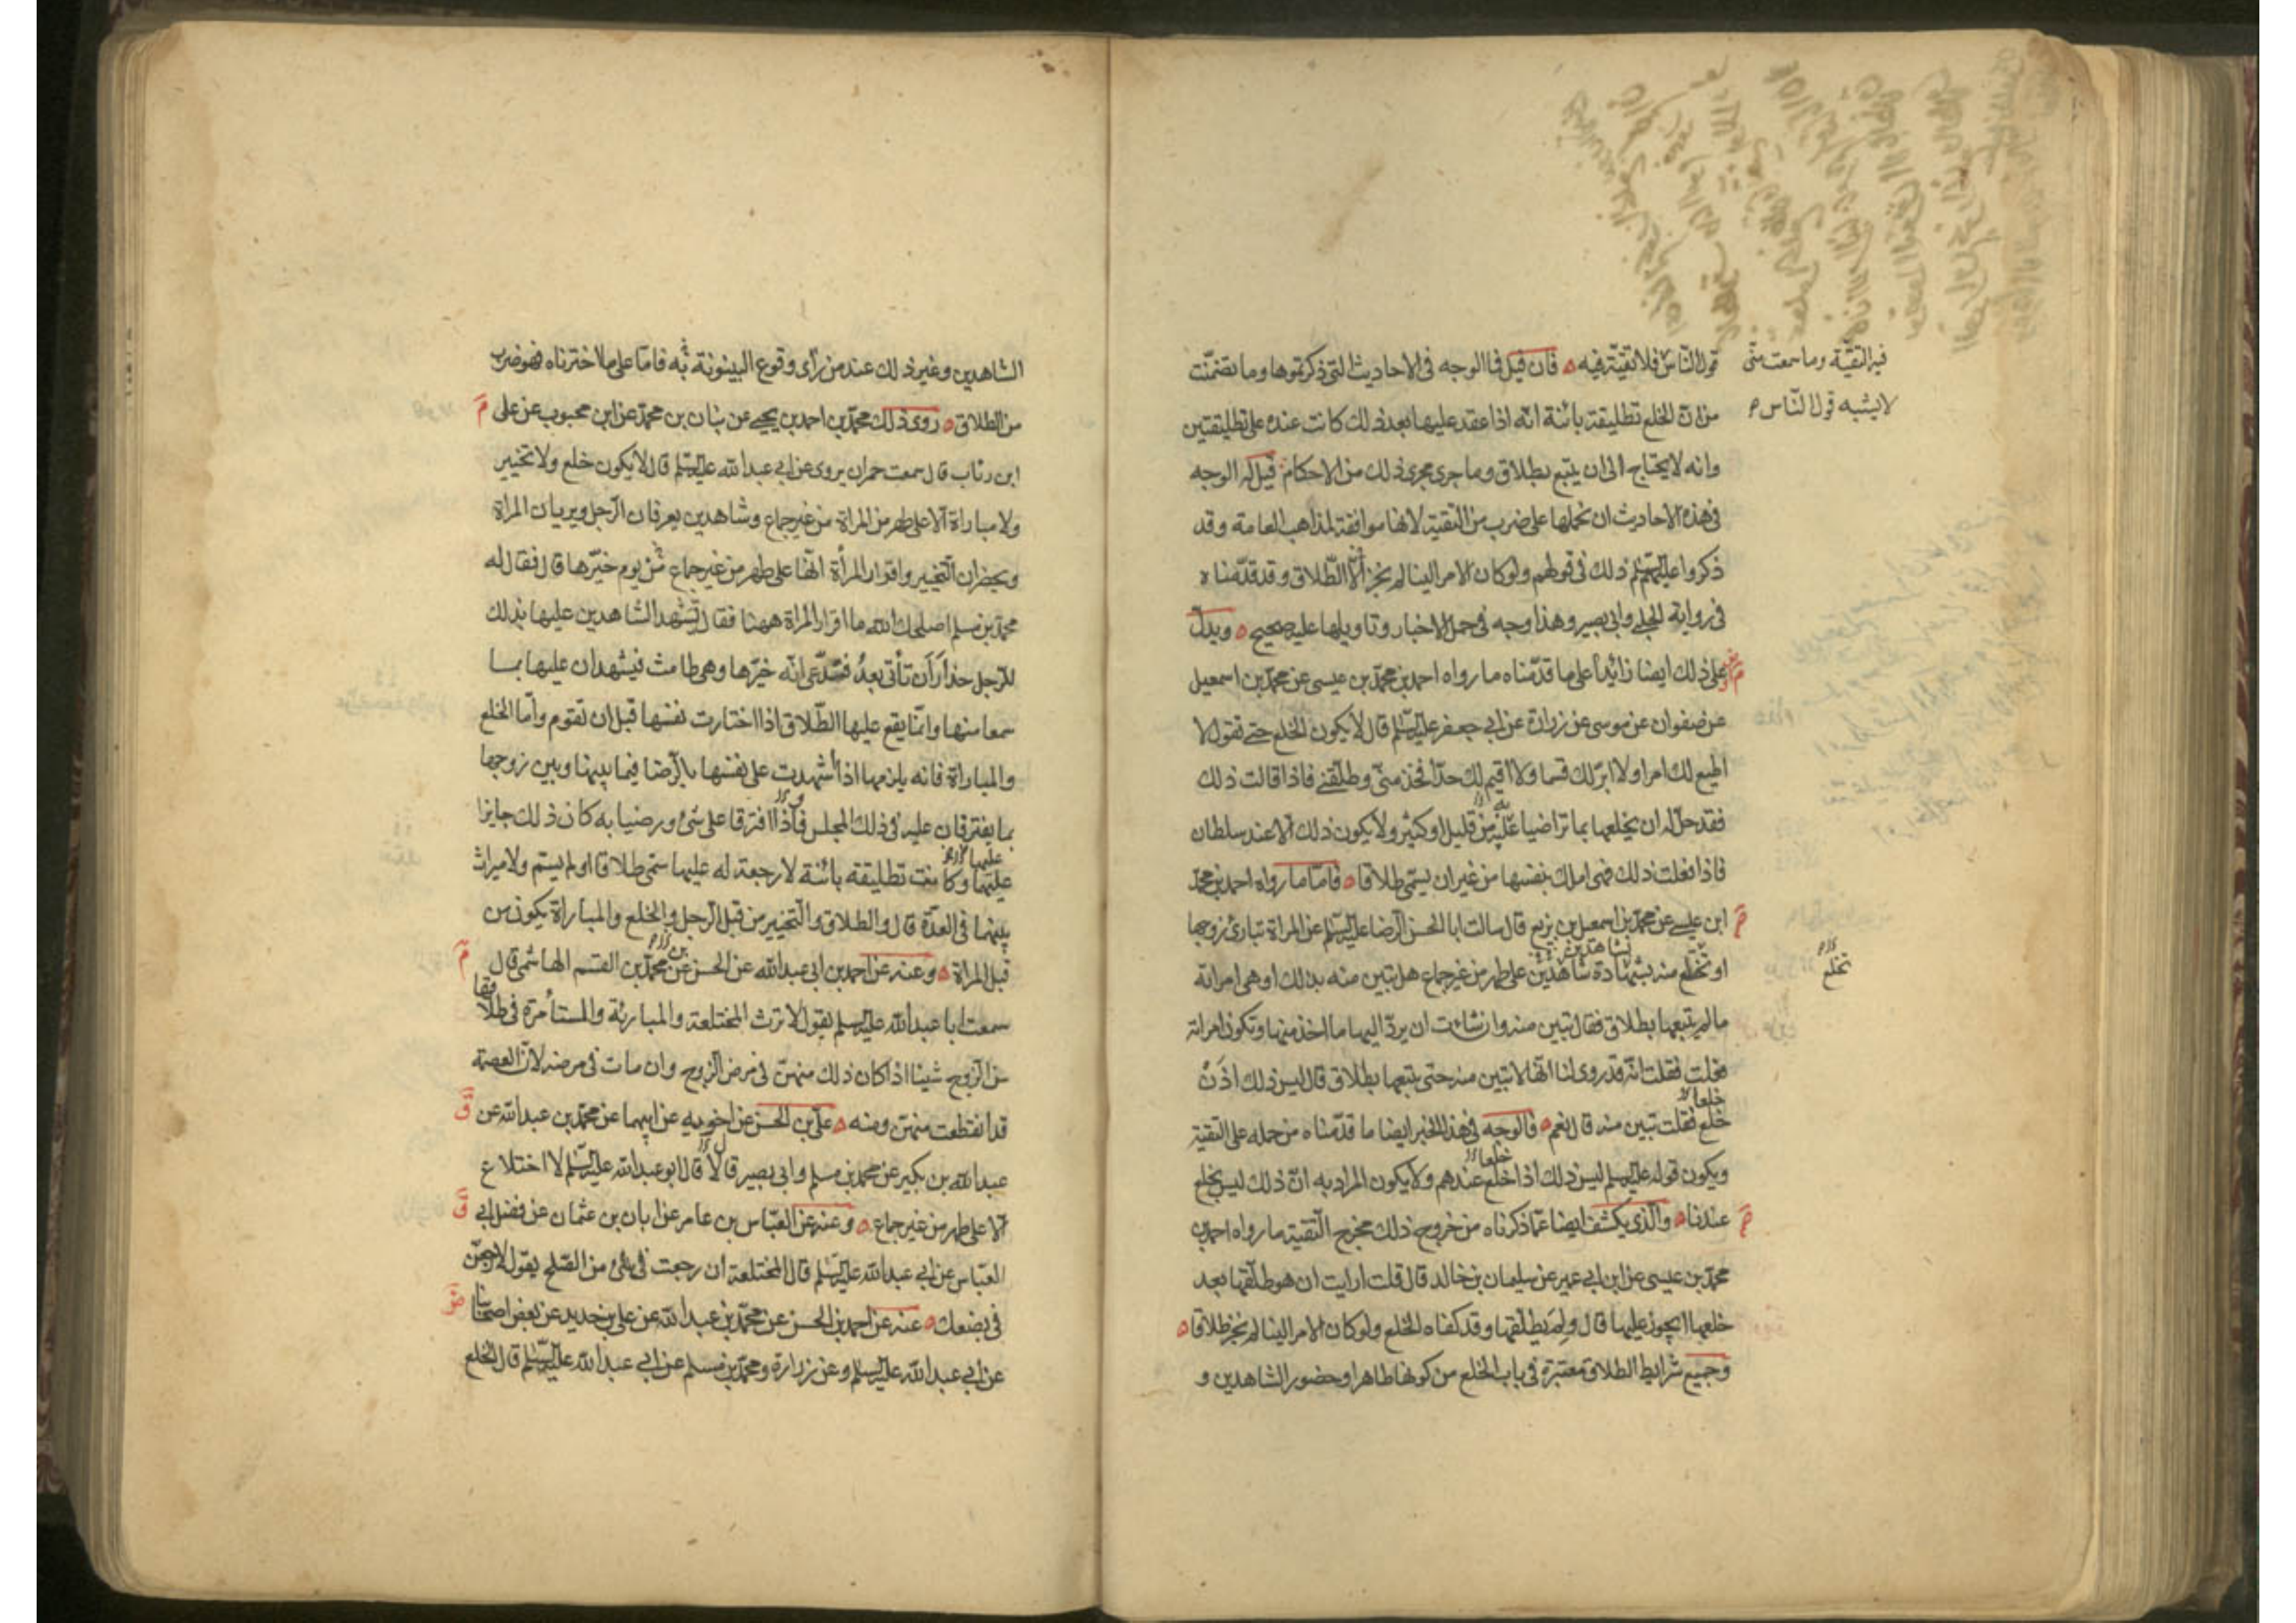 قول الناس فلا تقية فيه ه فان قيل فما الوجه فى الاحاديث التى ذكرتموها وما تضمنت
من ان الخلع تطليقة بائنة انه اذا عقد عليها بعد ذلك كانت عنده على تطليقتين
وانه لا يحتاج الى ان يتبع بطلاق وما جرى مجرى ذلك من الاحكام قيل له الوجه
فى هذه الاحاديث ان نحملها على ضرب من التقية لانها موافقة لمذاهب العامة وقد
ذكروا عليهم السلم ذلك فى قولهم ولو كان الامر الينا لم نجز الا الطلاق وقد قدمناه
فى رواية الحلبى وابى بصير وهذا وجه فى حمل الاخبار وتاويلها عليه صحيح ه ويدل
على ذلك ايضا زائدا على ما قدمناه ما رواه احمد بن محمد بن عيسى عن محمد بن اسمعيل
عن صفوان عن موسى عن زرارة عن ابى جعفر عليه السلم قال لا يكون الخلع حتى تقول لا
اطيع لك امرا ولا ابر لك قسما ولا اقيم لك حدا فخذ منى وطلقنى فاذا قالت ذلك
فقد حل له ان يخلعها بما تراضيا عليه من قليل او كثير ولا يكون ذلك الا عند سلطان
فاذا فعلت ذلك فهى املك بنفسها من غير ان يسمى طلاقا ه فاما ما رواه احمد بن محمد
ابن عيسى عن محمد بن اسمعيل بن بزيع قال سالت ابا الحسن الرضا عليه السلم عن المراة تبارى زوجها
او تختلع منه بشهادة شاهدين على طهر من غير جماع هل تبين منه بذلك او هى امراته
ما لم يتبعها بطلاق فقال تبين منه وان شاءت ان يرد اليها ما اخذ منها وتكون امراته
فعلت فقلت انه قد روى لنا انها لا تبين منه حتى يتبعها بطلاق قال ليس ذلك اذن
خلع فقلت تبين منه قال نعم ه فالوجه فى هذا الخبر ايضا ما قدمناه من حمله على التقية
ويكون قوله عليه السلم ليس ذلك اذا خلع عندهم ولا يكون المراد به ان ذلك ليس بخلع
عندنا ه والذى يكشف ايضا عما ذكرناه من خروج ذلك مخرج التقية ما رواه احمد بن
محمد بن عيسى عن ابن ابى عمير عن سليمان بن خالد قال قلت ارايت ان هو طلقها بعد
خلعها ايجوز عليها قال ولم يطلقها وقد كفاه الخلع ولو كان الامر الينا لم نجز طلاقا ه
وجميع شرايط الطلاق معتبرة فى باب الخلع من كونها طاهرا وحضور الشاهدين و
فيه التقية وما سمعت منى
لا يشبه قول الناس م
خلعا
خلعا
تخلع
الشاهدين وغير ذلك عند من راى وقوع البينونة به فاما على ما اخترناه فهو ضرب
من الطلاق ه روى ذلك محمد بن احمد بن يحيى عن بنان بن محمد عن ابن محبوب عن على
ابن رئاب قال سمعت حمران يروى عن ابى عبد الله عليه السلم قال لا يكون خلع ولا تخيير
ولا مباراة الا على طهر من المراة من غير جماع وشاهدين يعرفان الرجل ويريان المراة
ويحضران التخيير واقرار المرأة انها على طهر من غير جماع من يوم خيرها قال فقال له
محمد بن مسلم اصلحك الله ما اقرار المراة ههنا فقال تشهد الشاهدين عليها بذلك
للرجل حذار ان تأتى بعد فتدعى انه خيرها وهى طامث فيشهدان عليها بما
سمعا منها وانما يقع عليها الطلاق اذا اختارت نفسها قبل ان تقوم واما الخلع
والمباراة فانه يلزمها اذا أشهدت على نفسها بالرضا فيما بينها وبين زوجها
بما يفترقان عليه فى ذلك المجلس فاذا افترقا على شىء ورضيا به كان ذلك جايزا
عليهما وكانت تطليقة بائنة لا رجعة له عليها سمى طلاقا او لم يسم ولا ميراث
بينهما فى العدة قال والطلاق والتخيير من قبل الرجل والخلع والمباراة يكون من
قبل المراة ه وعنه عن احمد بن ابى عبد الله عن الحسن عن محمد بن القسم الهاشمى قال
سمعت ابا عبد الله عليه السلم يقول لا ترث المختلعة والمبارئة والمستأمرة فى طلاقها
من الزوج شيئا اذا كان ذلك منهن فى مرض الزوج وان مات فى مرضه لان العصمة
قد انقطعت منهن ومنه ه على بن الحسن عن اخويه عن ابيهما عن محمد بن عبد الله عن
عبد الله بن بكير عن محمد بن مسلم وابى بصير قالا قال ابو عبد الله عليه السلم لا اختلاع
الا على طهر من غير جماع ه وعنه عن العباس بن عامر عن ابان بن عثمان عن فضل ابى
العباس عن ابى عبد الله عليه السلم قال المختلعة ان رجعت فى شىء من الصلح يقول لارجعن
فى بضعك ه عنه عن احمد بن الحسن عن محمد بن عبد الله عن على بن حديد عن بعض اصحابنا
عن ابى عبد الله عليه السلم وعن زرارة ومحمد بن مسلم عن ابى عبد الله عليه السلم قال الخلع